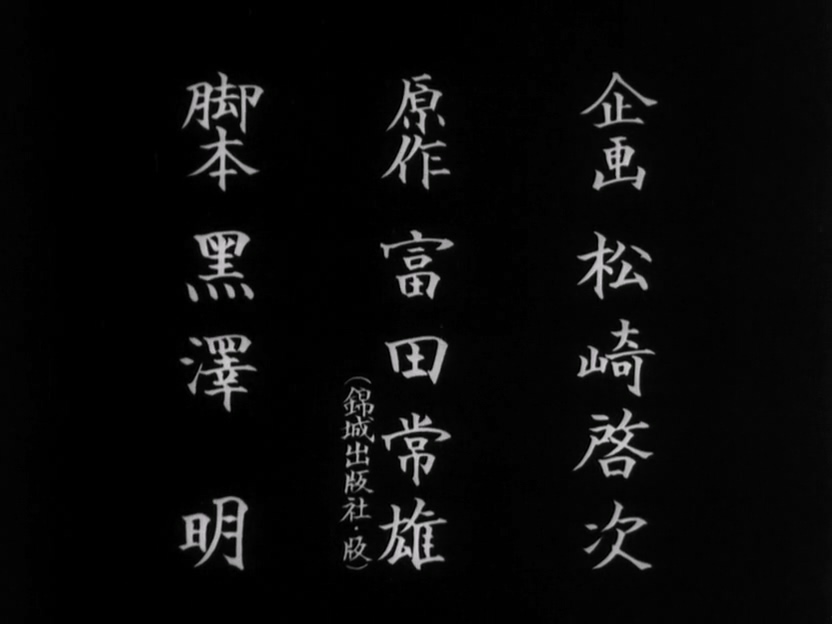 企画 松崎啓次
原作 富田常雄
(錦城出版社・版)
脚本 黑澤 明